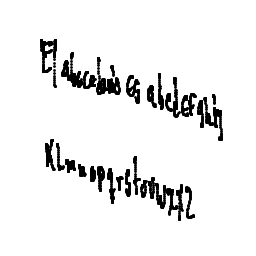 El abecedario es abcdefghij
Klmnopqrstuvwxyz